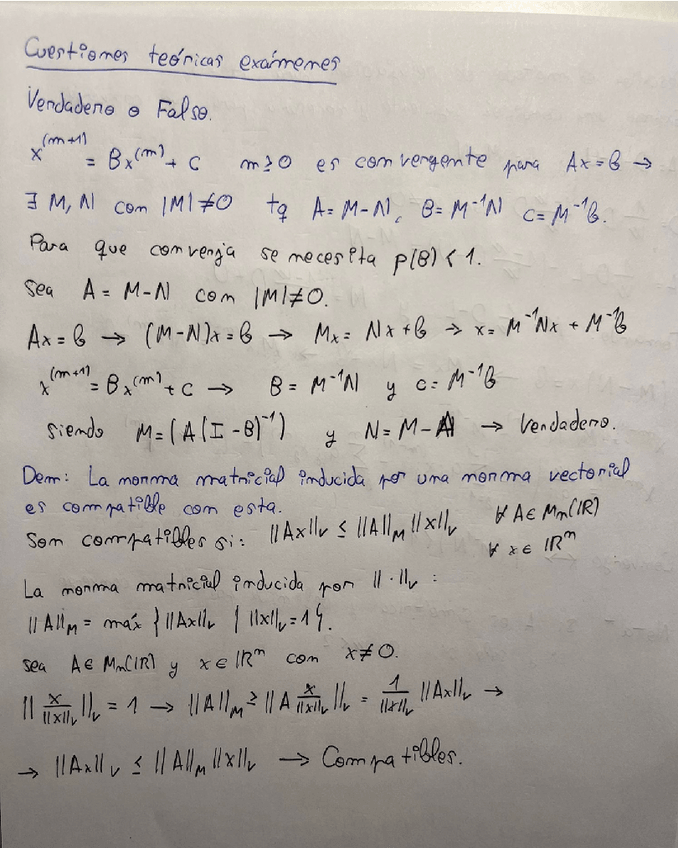 Cuestiones teóricas exámenes
Verdadero o Falso.
x^(m+1) = Bx^(m) + c m≥0 es convergente para Ax=b →
∃ M, N con |M|≠0 tq A=M-N, B=M⁻¹N c=M⁻¹b.
Para que converja se necesita ρ(B)<1.
Sea A=M-N con |M|≠0.
Ax=b → (M-N)x=b → Mx=Nx+b → x=M⁻¹Nx+M⁻¹b
x^(m+1) = Bx^(m) + c → B=M⁻¹N y c=M⁻¹b
siendo M=(A(I-B)⁻¹) y N=M-A → Verdadero.
Dem: La norma matricial inducida por una norma vectorial
es compatible con esta.
Son compatibles si: ||Ax||_v ≤ ||A||_M ||x||_v ∀ A∈Mn(IR)
∀ x∈IRⁿ
La norma matricial inducida por ||·||_v :
||A||_M = máx {||Ax||_v | ||x||_v=1}.
sea A∈Mn(IR) y x∈IRⁿ con x≠0.
||x/||x||_v||_v = 1 → ||A||_M ≥ ||A x/||x||_v||_v = 1/||x||_v ||Ax||_v →
→ ||Ax||_v ≤ ||A||_M ||x||_v → Compatibles.